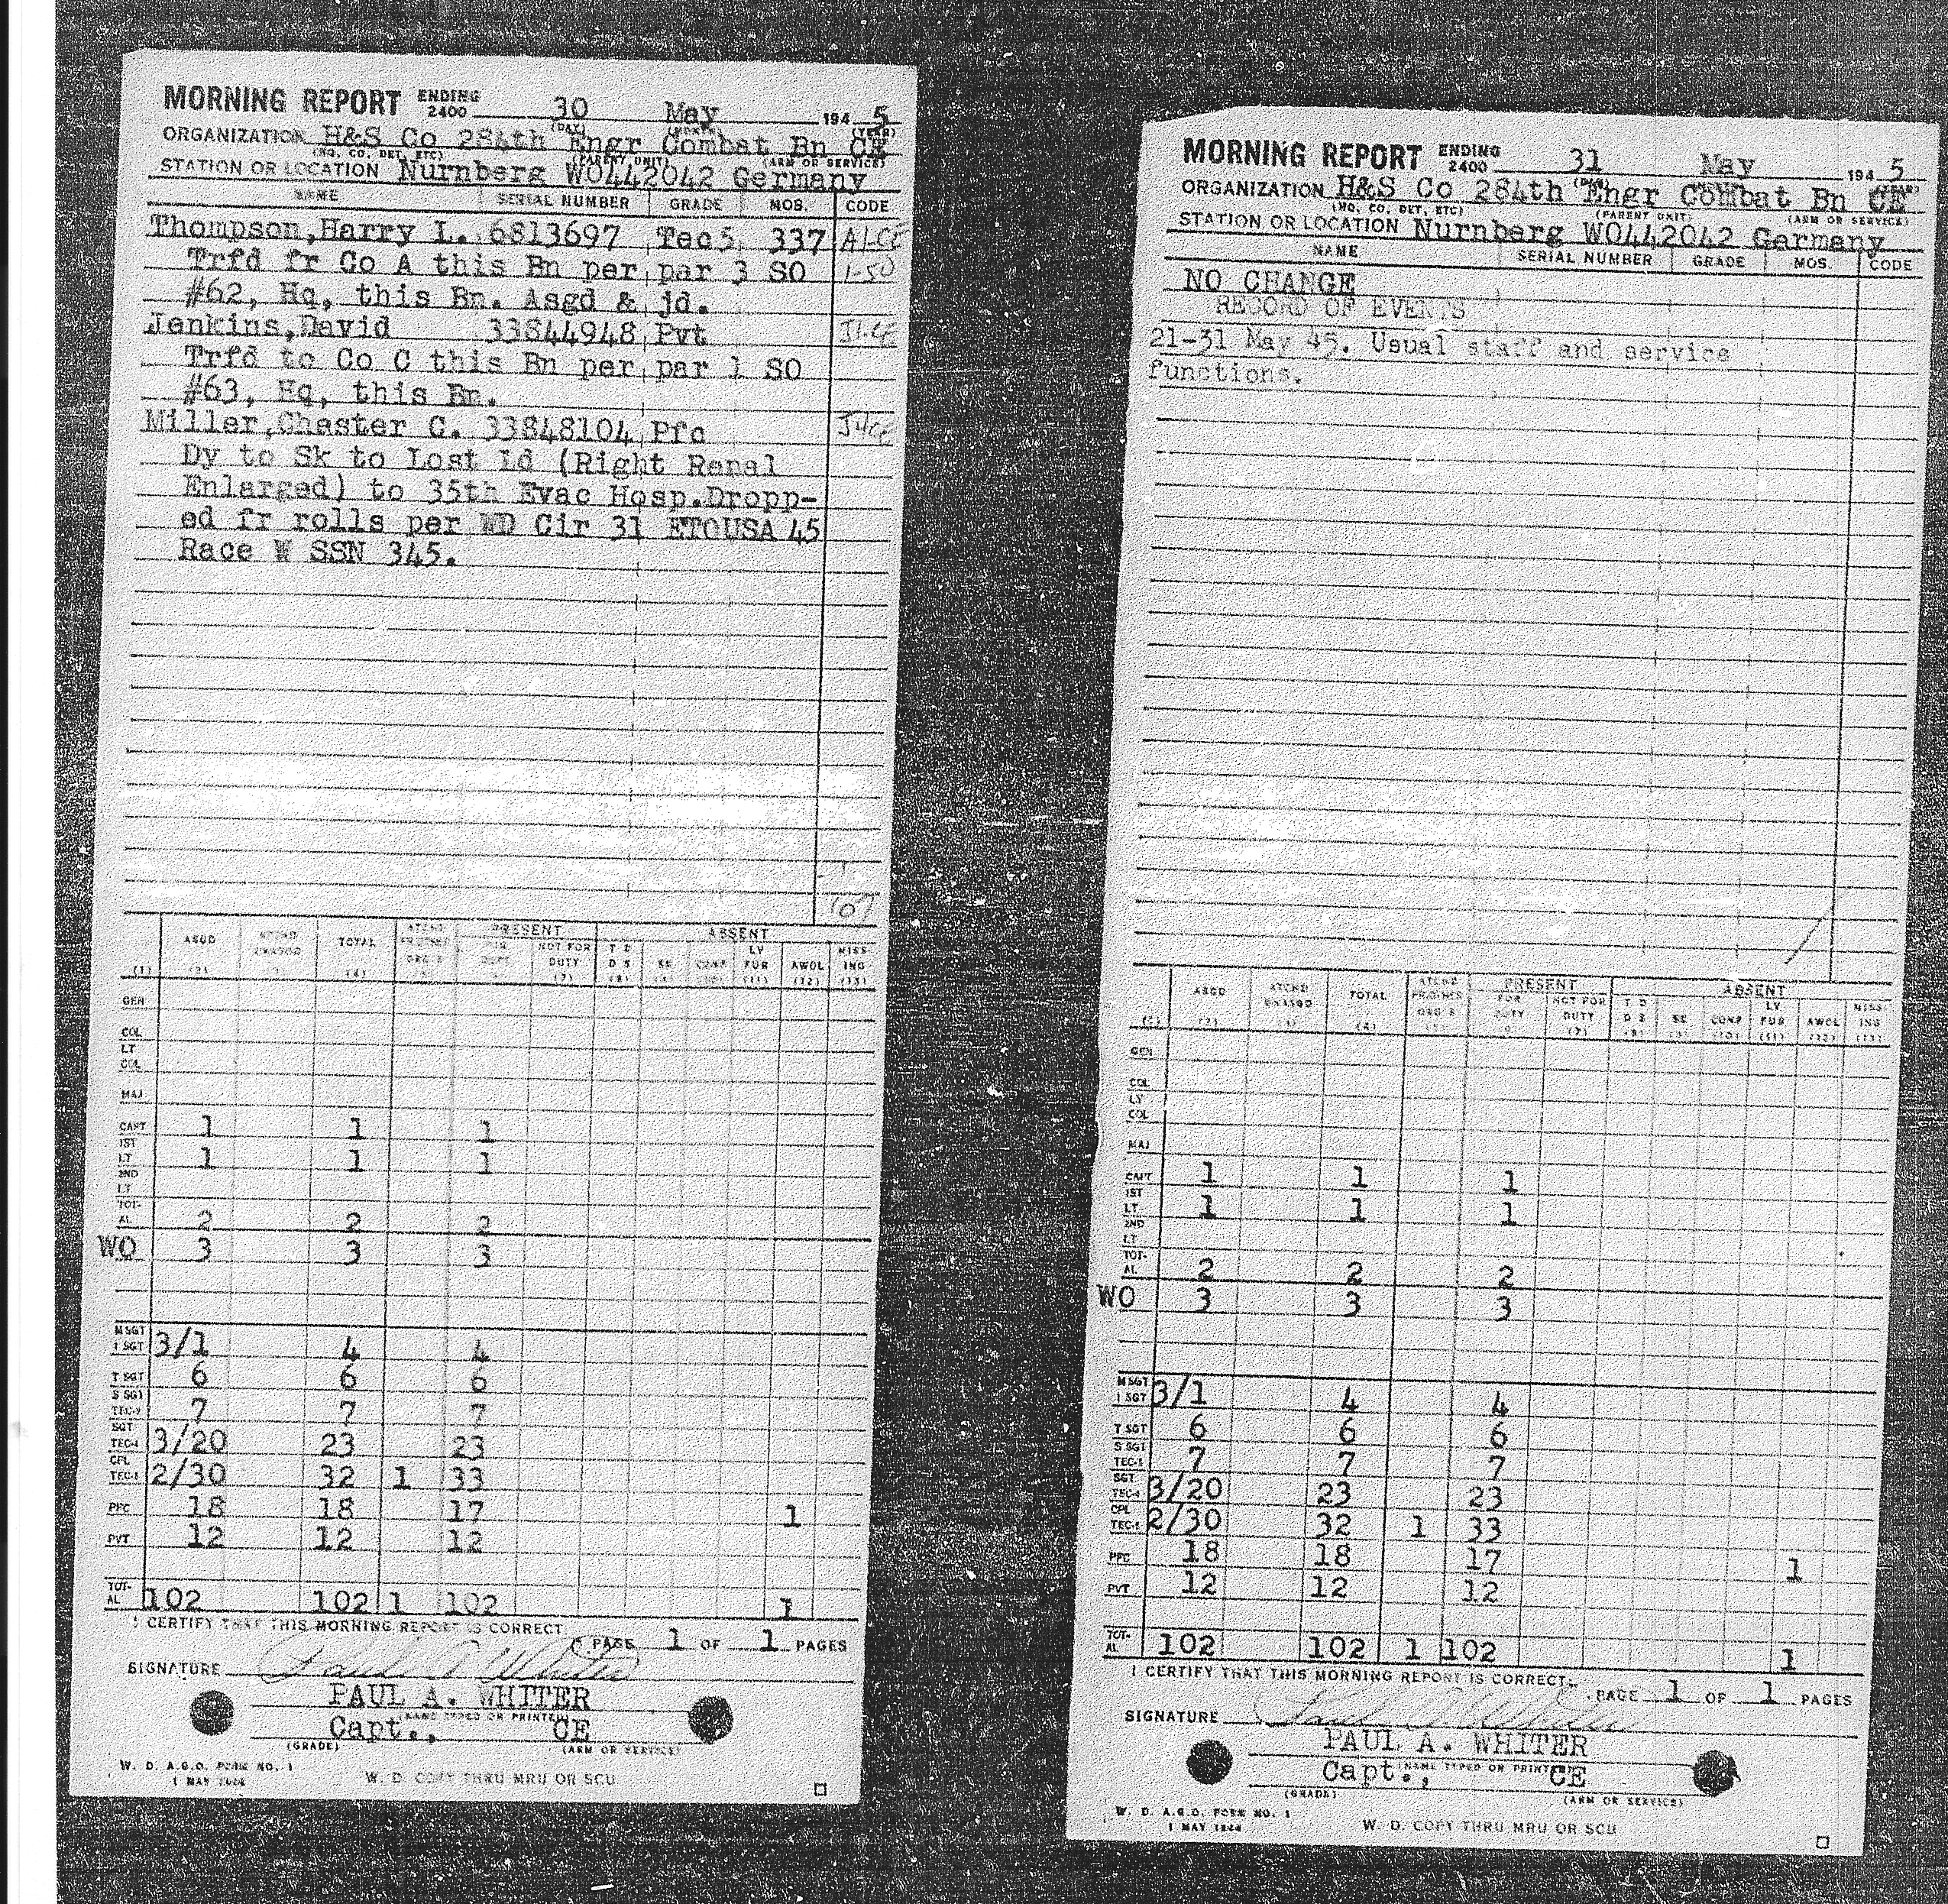 MORNING REPORT ENDING 2400 30 May 194 5
(DAY) (MONTH) (YEAR)
ORGANIZATION H&S Co 284th Engr Combat Bn CE
(NO. CO. DET. ETC) (PARENT UNIT) (ARM OR SERVICE)
STATION OR LOCATION Nurnberg WO442042 Germany
NAME SERIAL NUMBER GRADE MOS. CODE
Thompson,Harry L. 6813697 Tec5 337
Trfd fr Co A this Bn per par 3 SO
#62, Hq, this Bn. Asgd & jd.
Jenkins,David 33844948 Pvt
Trfd to Co C this Bn per par 1 SO
#63, Hq, this Bn.
Miller,Chaster C. 33848104 Pfc
Dy to Sk to Lost Ld (Right Renal
Enlarged) to 35th Evac Hosp.Dropp-
ed fr rolls per WD Cir 31 ETOUSA 45
Race W SSN 345.
107
PRESENT ABSENT
ASGD ATCHD UNASGD TOTAL FOR DUTY NOT FOR DUTY T D D S SK CONF LV FUR AWOL MISS- ING
(1) (2) (4) (7) (8) (11) (12) (13)
GEN
COL
LT
COL
MAJ
CAPT 1 1 1
1ST
LT 1 1 1
2ND
LT
TOT-
AL 2 2 2
WO 3 3 3
M SGT
1 SGT 3/1 4 4
T SGT 6 6 6
S SGT
TEC-3 7 7 7
SGT
TEC-4 3/20 23 23
CPL
TEC-5 2/30 32 1 33
PFC 18 18 17 1
PVT 12 12 12
TOT-
AL 102 102 1 102 1
I CERTIFY THAT THIS MORNING REPORT IS CORRECT
PAGE 1 OF 1 PAGES
SIGNATURE Paul A Whiter
PAUL A. WHITER
(NAME TYPED OR PRINTED)
Capt., CE
(GRADE) (ARM OR SERVICE)
W. D. A.G.O. FORM NO. 1
1 MAY 1944
W. D. COPY THRU MRU OR SCU
MORNING REPORT ENDING 2400 31 May 194 5
ORGANIZATION H&S Co 284th Engr Combat Bn CE
(NO. CO. DET, ETC) (PARENT UNIT) (ARM OR SERVICE)
STATION OR LOCATION Nurnberg WO442042 Germany
NAME SERIAL NUMBER GRADE MOS. CODE
NO CHANGE
RECORD OF EVENTS
21-31 May 45. Usual staff and service
functions.
PRESENT ABSENT
ASGD ATCHD UNASGD TOTAL FOR DUTY NOT FOR DUTY T D D S SK CONF LV FUR AWOL MISS- ING
(2) (4) (7) (8) (10) (11) (12) (13)
GEN
COL
LT
COL
MAJ
CAPT 1 1 1
1ST
LT 1 1 1
2ND
LT
TOT-
AL 2 2 2
WO 3 3 3
M SGT
1 SGT 3/1 4 4
T SGT 6 6 6
S SGT
TEC-3 7 7 7
SGT
TEC-4 3/20 23 23
CPL
TEC-5 2/30 32 1 33
PFC 18 18 17 1
PVT 12 12 12
TOT-
AL 102 102 1 102 1
I CERTIFY THAT THIS MORNING REPORT IS CORRECT.
PAGE 1 OF 1 PAGES
SIGNATURE Paul A Whiter
PAUL A. WHITER
(NAME TYPED OR PRINTED)
Capt., CE
(GRADE) (ARM OR SERVICE)
W. D. A.G.O. FORM NO. 1
1 MAY 1944
W. D. COPY THRU MRU OR SCU